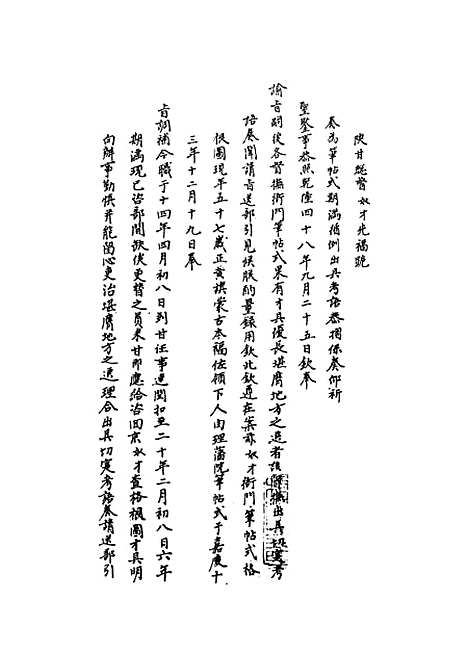 陝甘總督奴才先福跪
奏為筆帖式期滿循例出具考語恭摺保奏仰祈
聖鑒事恭照乾隆四十八年九月二十五日欽奉
諭旨嗣後各督撫衙門筆帖式果有才具優長堪膺地方之選者該督撫出具切實考
語奏聞請旨送部引見候朕酌量錄用欽此欽遵在案茲奴才衙門筆帖式格
根圖現年五十七歲正黃旗蒙古本福佐領下人由理藩院筆帖式于嘉慶十
三年十二月十九日奉
旨調補今職于十四年四月初八日到甘任事連閏扣至二十年二月初八日六年
期滿現已咨部開缺俟更替之員來甘即應給咨回京奴才查格根圖才具明
白辦事勤慎並能留心吏治堪膺地方之選理合出具切實考語奏請送部引